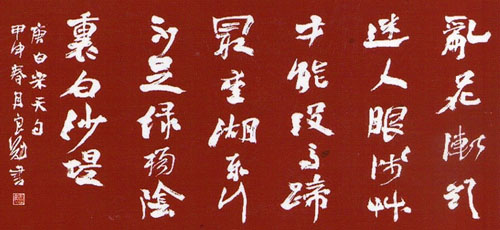 亂花漸欲
迷人眼淺艸
才能没马蹄
最愛湖東行
不足绿楊陰
裏白沙堤
唐白乐天句
甲申春月书